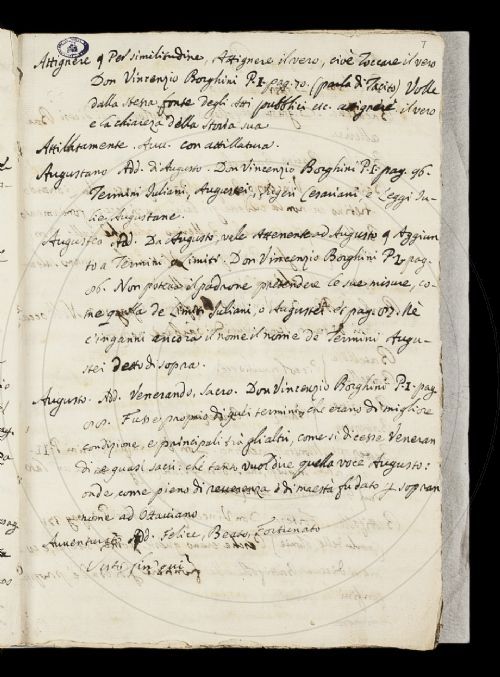 7
Attignere ¶ Per similitudine, Attignere il vero, cioè Toccare il vero
Don Vincenzio Borghini P.I. pag. 70. (parla di Tacito) Volle
dalla stessa fonte degli Atti pubblici etc. attignere il vero
e la chiareza della storia sua
Attillatamente. Avv. con attillatura.
Augustano. Add. di Augusto. Don Vincenzio Borghini P.I. pag. 96.
Termini Iuliani, Augustei, Cesariani, e Leggi Iu-
lie, Augustane.
Augusteo Add. Da Augusto, vale Attenente ad Augusto ¶ Aggiun
to a Termini o Limiti. Don Vincenzio Borghini P.I. pag.
86. Non potea il padrone pretendere le sue misure, co-
me quella de Limiti Iuliani, o Augustei. et pag. 87. Nè
c'inganni ancora il nome il nome de Termini Augu-
stei detto di sopra.
Augusto. Add. Venerando, Sacro. Don Vincenzio Borghini P.I. pag.
Fusse proprio di quei termini che erano di migliore
condizione, e principali fra gli altri, come si dicesse Veneran
di e quasi sacri: che tanto vuol dire quella voce Augusto:
onde, come pieno di reverenza e di maestà fu dato p sopran
nome ad Ottaviano
Avventurato Add. Felice, Beato, Fortunato
Visto fin qui